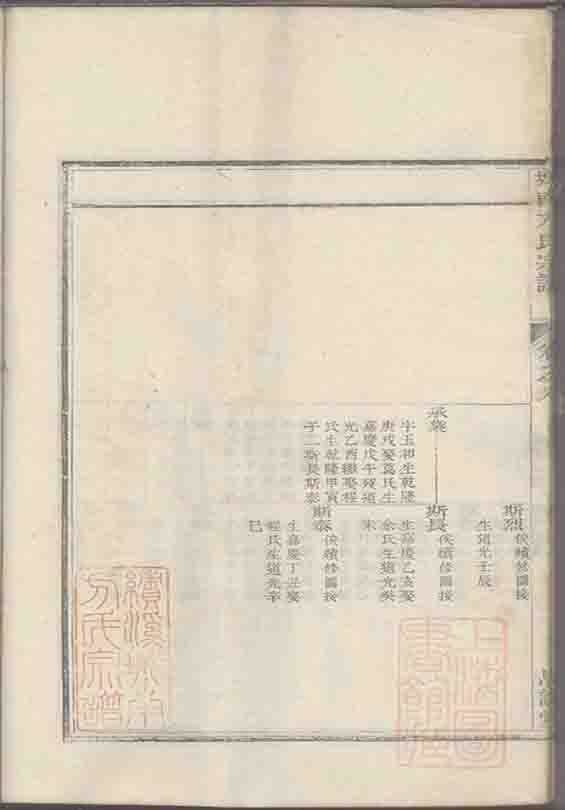 城南方氏宗譜
卷之
斯烈 俟續修圖接
生道光壬辰
承
字玉和生乾隆
庚戌娶葛氏生
嘉慶戊午歿道
光乙酉繼娶程
氏生乾隆甲寅
子二斯長斯泰
斯長 俟續修圖接
生嘉慶乙亥娶
余氏生道光癸
未
斯泰 俟續修圖接
生嘉慶丁丑娶
程氏生道光辛
巳
上海圖
書館藏
績溪城南
方氏宗譜